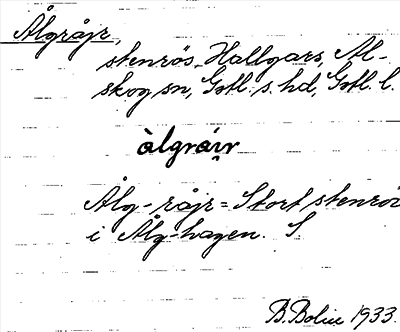 Ålgråjr,
stenrös, Hallgars, Al-
skog sn, Gotl. s. hd, Gotl. l.
àlgráir
Ålg-råjr = Stort stenrös
i Ålg-hagen. S
B. Bolin 1933.